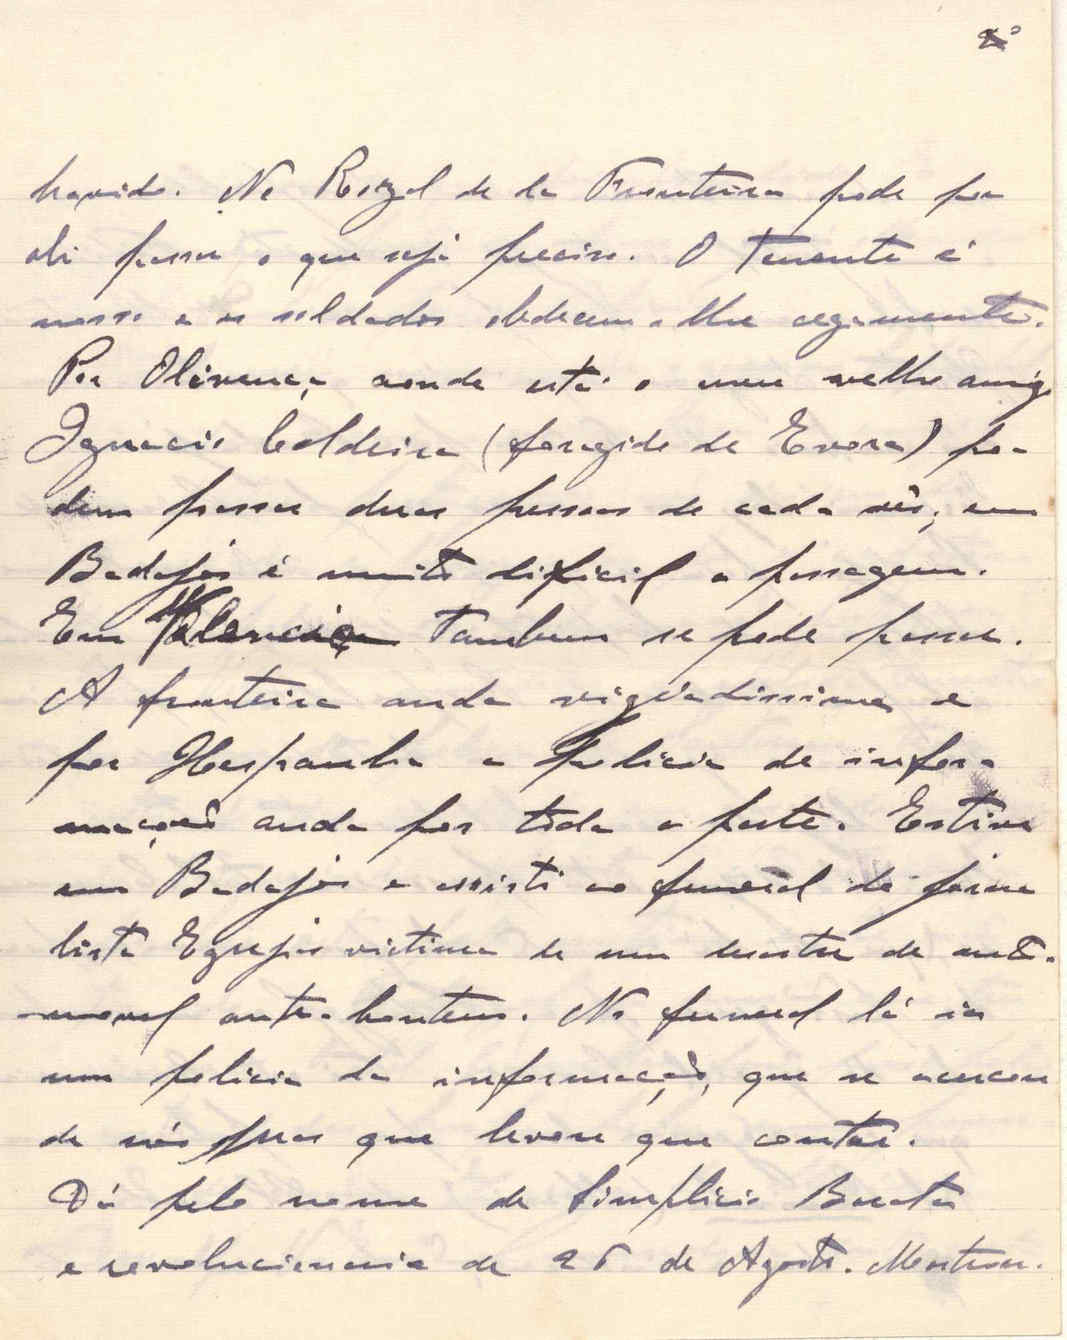 2º
havido. No Rozal de la Fronteira pode por
ali passar o que seja preciso. O Tenente é
nosso e os soldados obdecem-lhe cegamente.
Por Olivença, aonde está o meu velho amigo
Ignacio Caldeira (foragido de Evora) po-
dem passar duas pessoas de cada vês, em
Badajós é muito dificil a passagem.
Em Valencia tambem se pode passar.
A fronteira anda vigiadissima e
por Hespanha a policia de infor-
mações anda por toda a parte. Estive
em Badajós e assisti ao funeral do jorna
lista victima de um desastre de auto-
movel ante-hontem. No funeral lá ia
um policia da informação, que se acercou
de nós mas que levou que contar.
Dá pelo nome de Simplicio Barata
e revolucionario de 26 de Agosto.